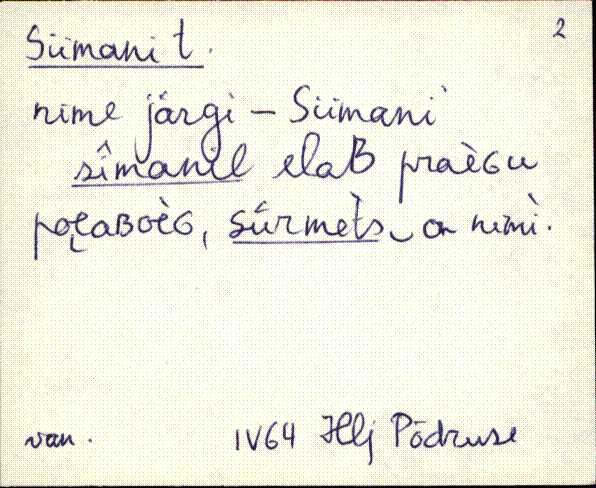 2
Siimani t.
nime järgi – Siimani
sîmanil elaB praèGu
poɛ̨aBoèG, sǘrmèts‿on nimì.
van. IV64 Hlj Põdruse